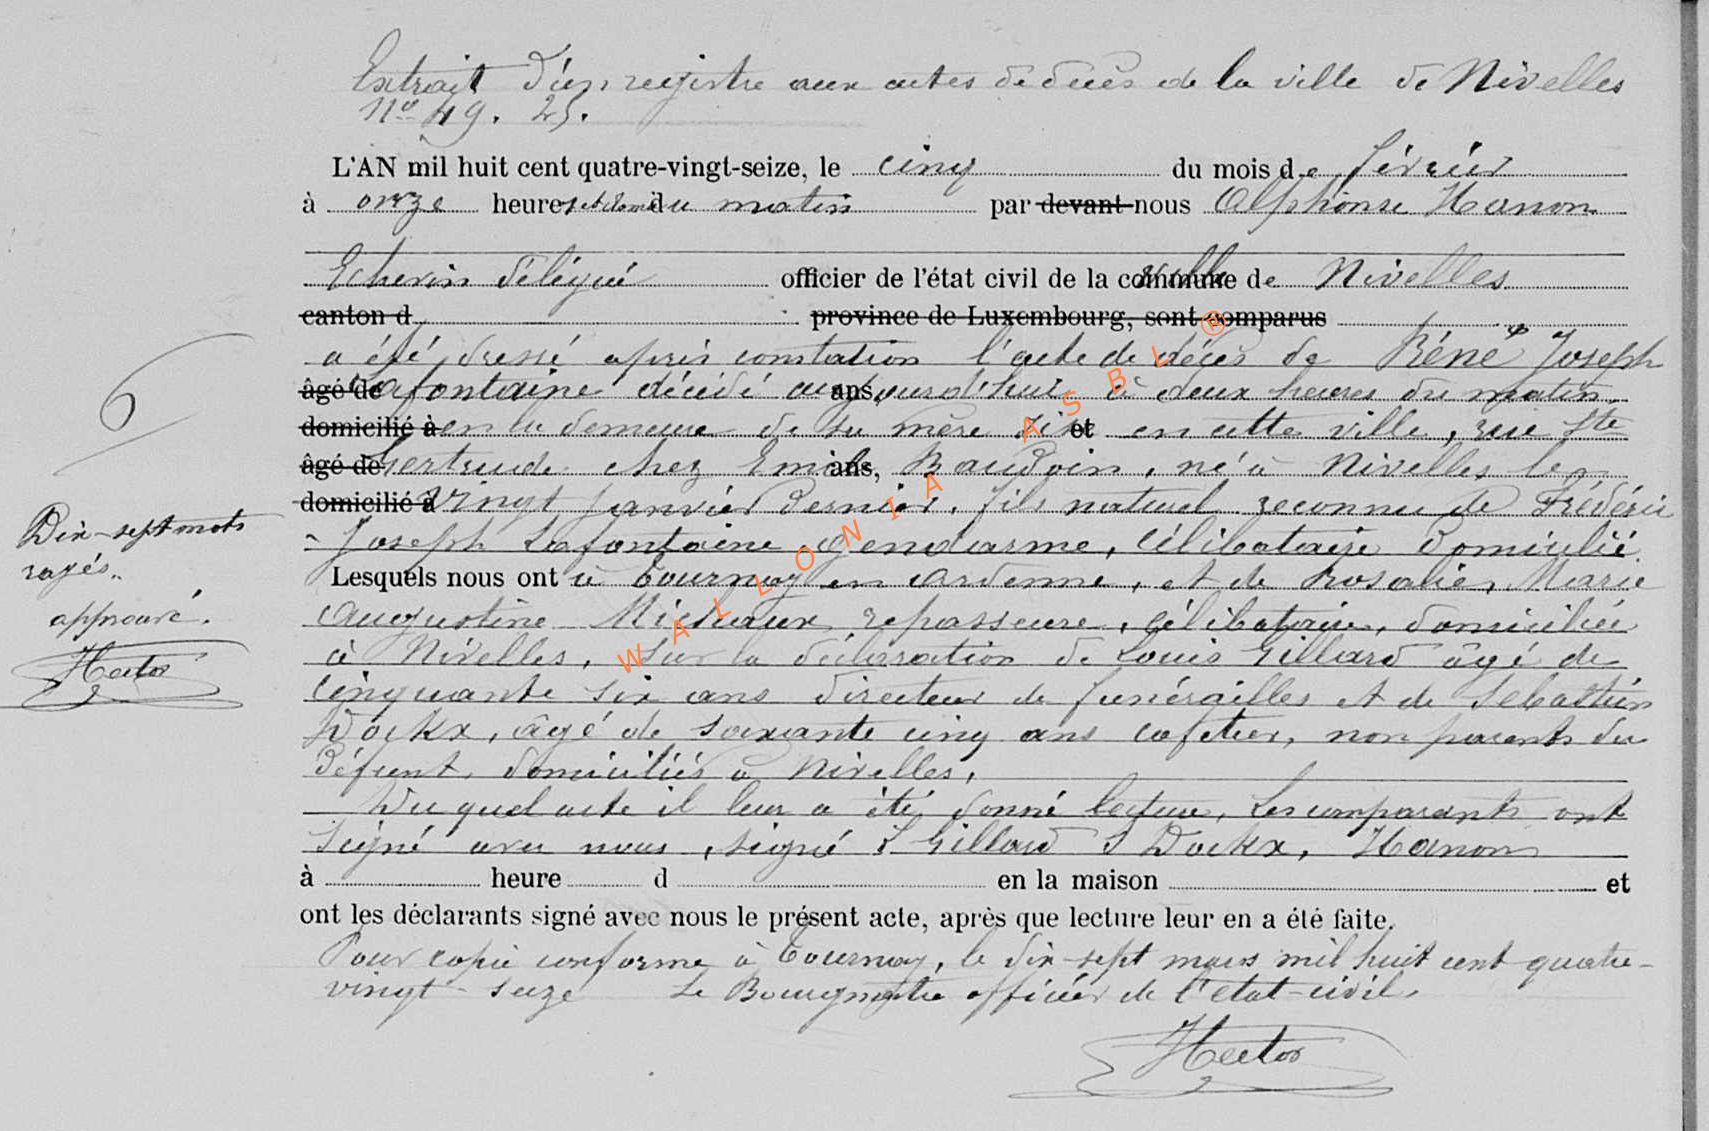 Extrait d'un registre aux actes de décès de la ville de Nivelles
N° 49. 25.
L'AN mil huit cent quatre-vingt-seize, le cinq du mois de février
à onze heures et demi du matin par devant nous Alphonse Hanon
Echevin délégué officier de l'état civil de la commune ville de Nivelles
canton d province de Luxembourg, sont comparus
a été dressé après constation l'acte de décès de Réné Joseph
âgé de Lafontaine décédé aujourd'hui ans, à deux heures du matin,
domicilié à en la demeure de sa mère sise et en cette ville, rue Ste
âgé de Gertrude chez Emile ans, Baudoin, né à Nivelles le
domicilié à vingt janvier dernier, fils naturel reconnu de Frédéric
Joseph Lafontaine gendarme, célibataire domicilié
Lesquels nous ont à Tournay en Ardenne, et de Rosalie, Marie
Augustine Michaux repasseuse, célibataire, domiciliée
à Nivelles, sur la déclaration de Louis Gillard âgé de
cinquante six ans directeur de funérailles et de Sébastien
Dockx, âgé de soixante cinq ans cafetier, non parents du
défunt, domiciliés à Nivelles,
Du quel acte il leur a été donné lecture, les comparants ont
signé avec nous, signé L Gillard S Dockx, Hanon
à heure d en la maison et
ont les déclarants signé avec nous le présent acte, après que lecture leur en a été faite.
Pour copie conforme à Tournay, le dix-sept mars mil huit cent quatre-
vingt-seize Le Bourgmestre officier de l'état-civil,
Hector
6
Dix-sept mots
rayés
approuvé.
Hector
WALLONIA ASBL ®